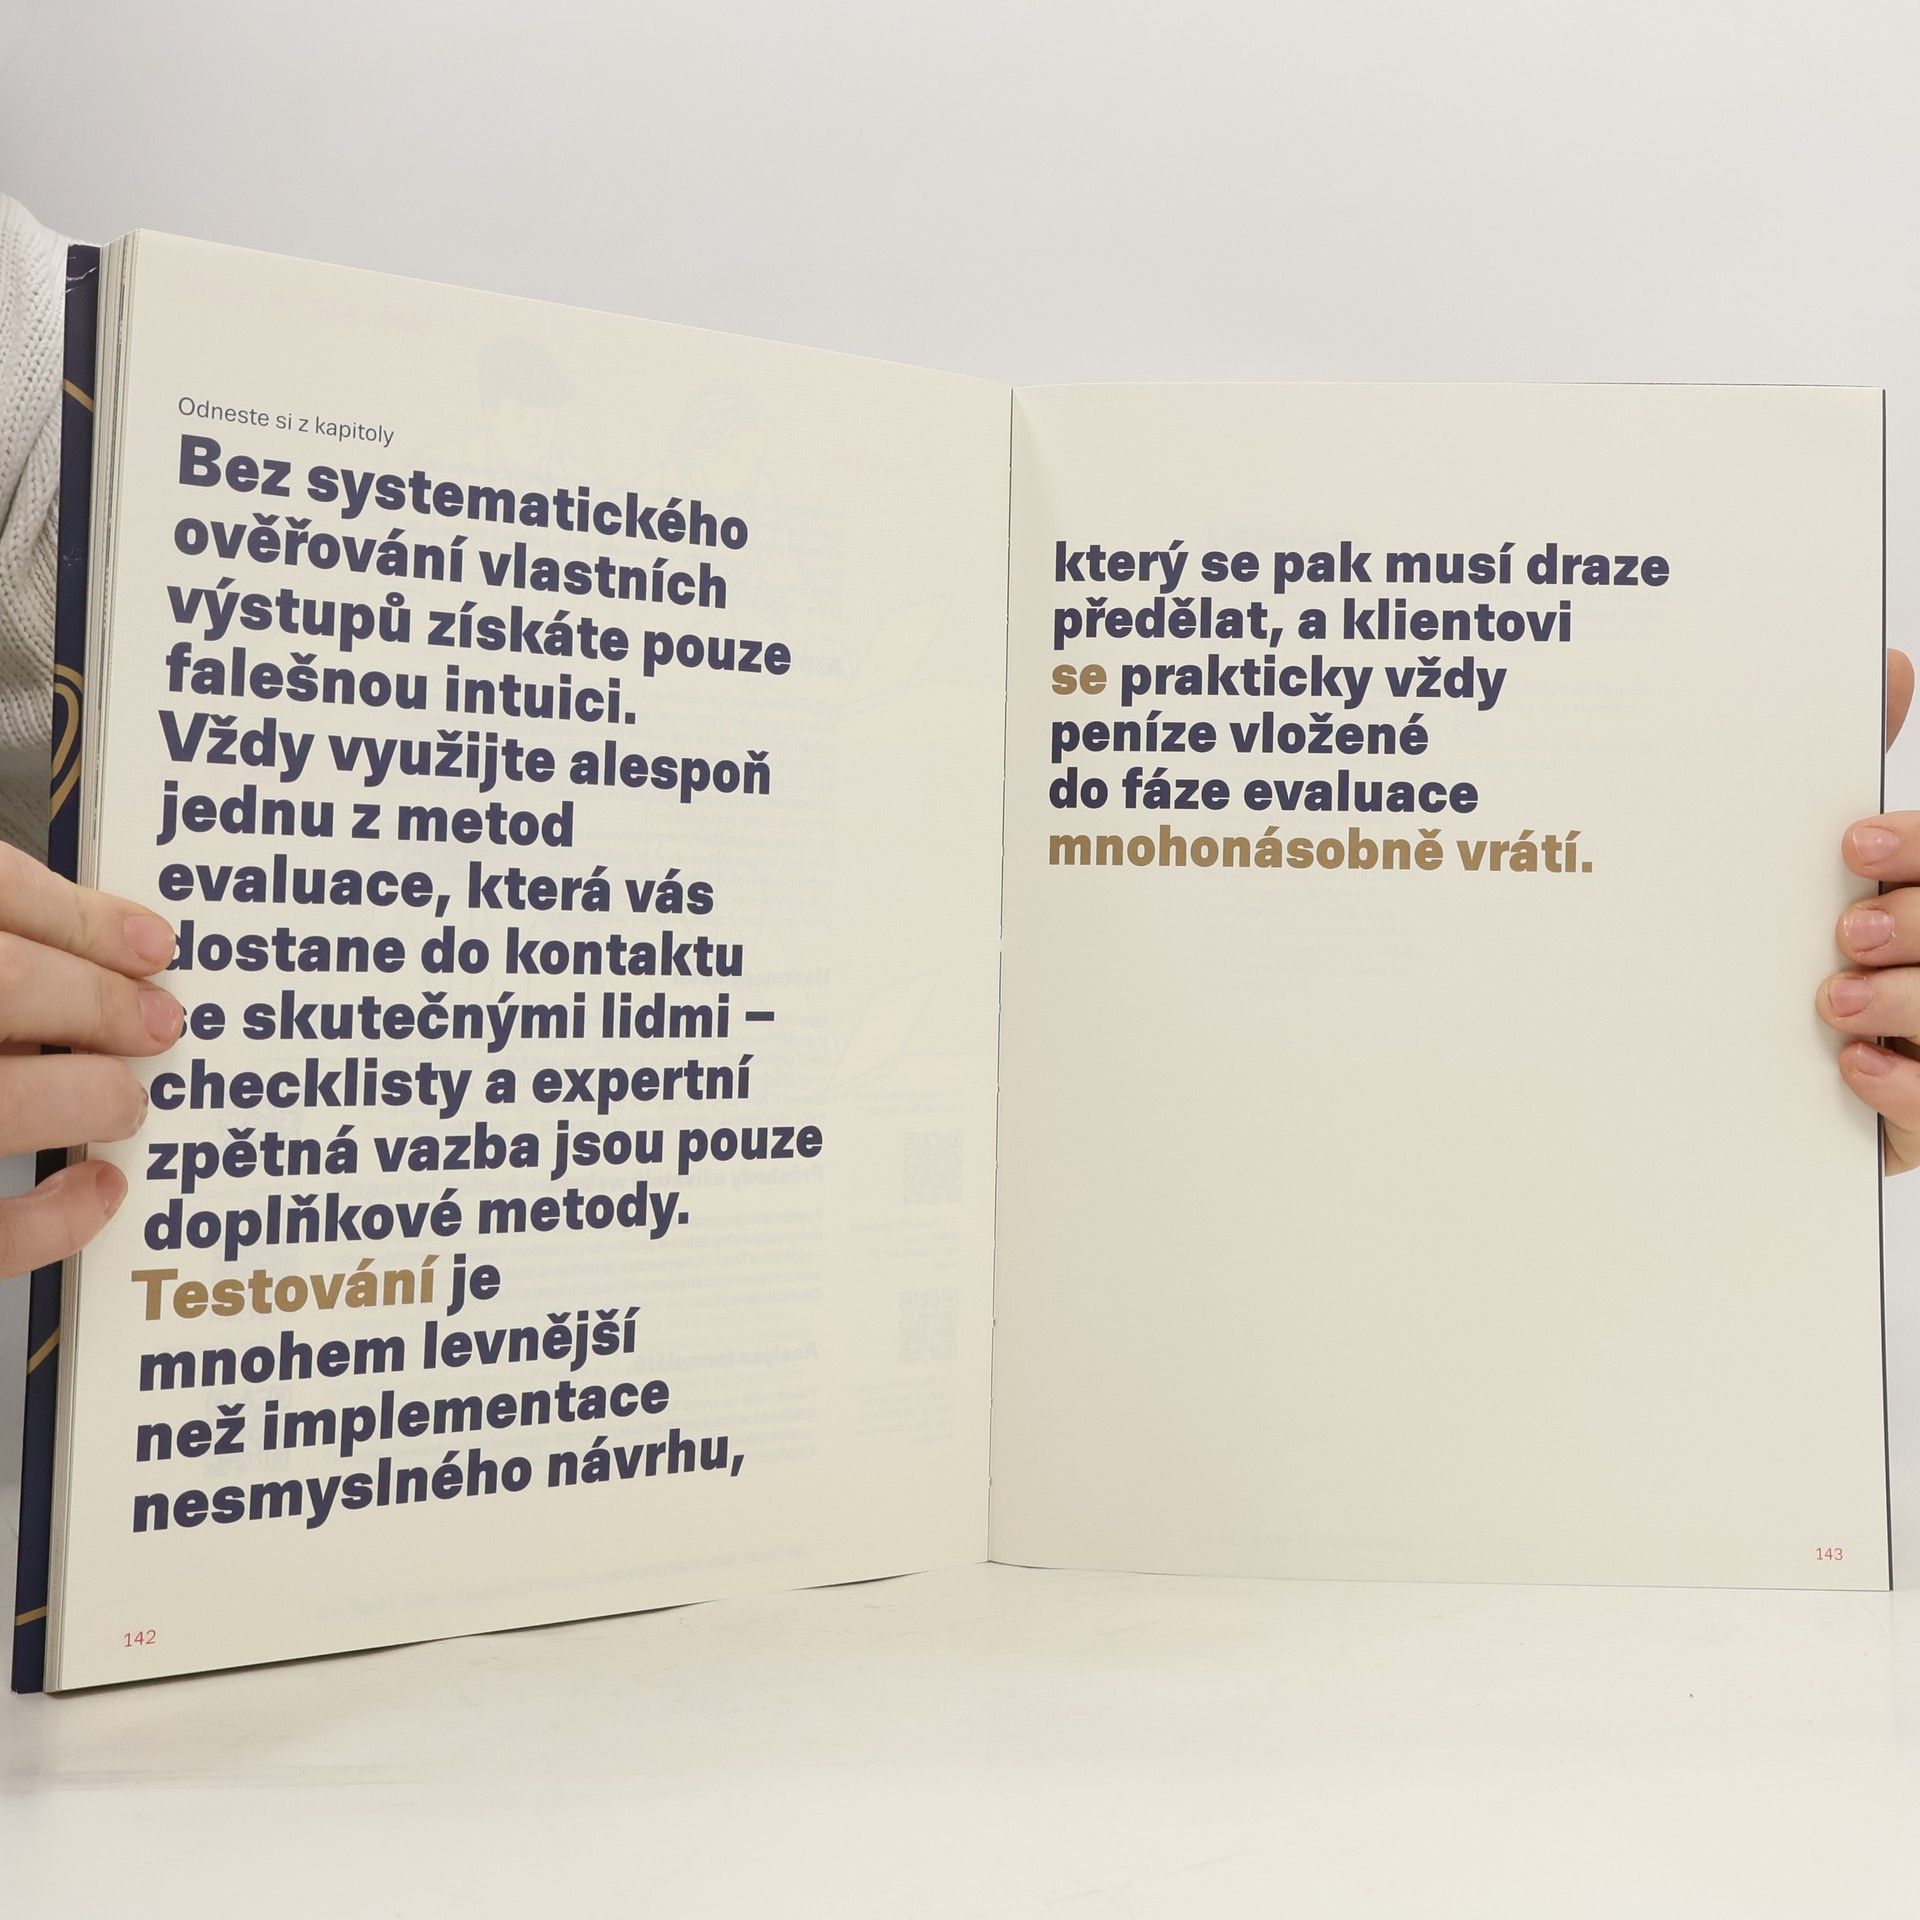 Odneste si z kapitoly
Bez systematického
ověřování vlastních
výstupů získáte pouze
falešnou intuici.
Vždy využijte alespoň
jednu z metod
evaluace, která vás
dostane do kontaktu
se skutečnými lidmi –
checklisty a expertní
zpětná vazba jsou pouze
doplňkové metody.
Testování je
mnohem levnější
než implementace
nesmyslného návrhu,
142
který se pak musí draze
předělat, a klientovi
se prakticky vždy
peníze vložené
do fáze evaluace
mnohonásobně vrátí.
143